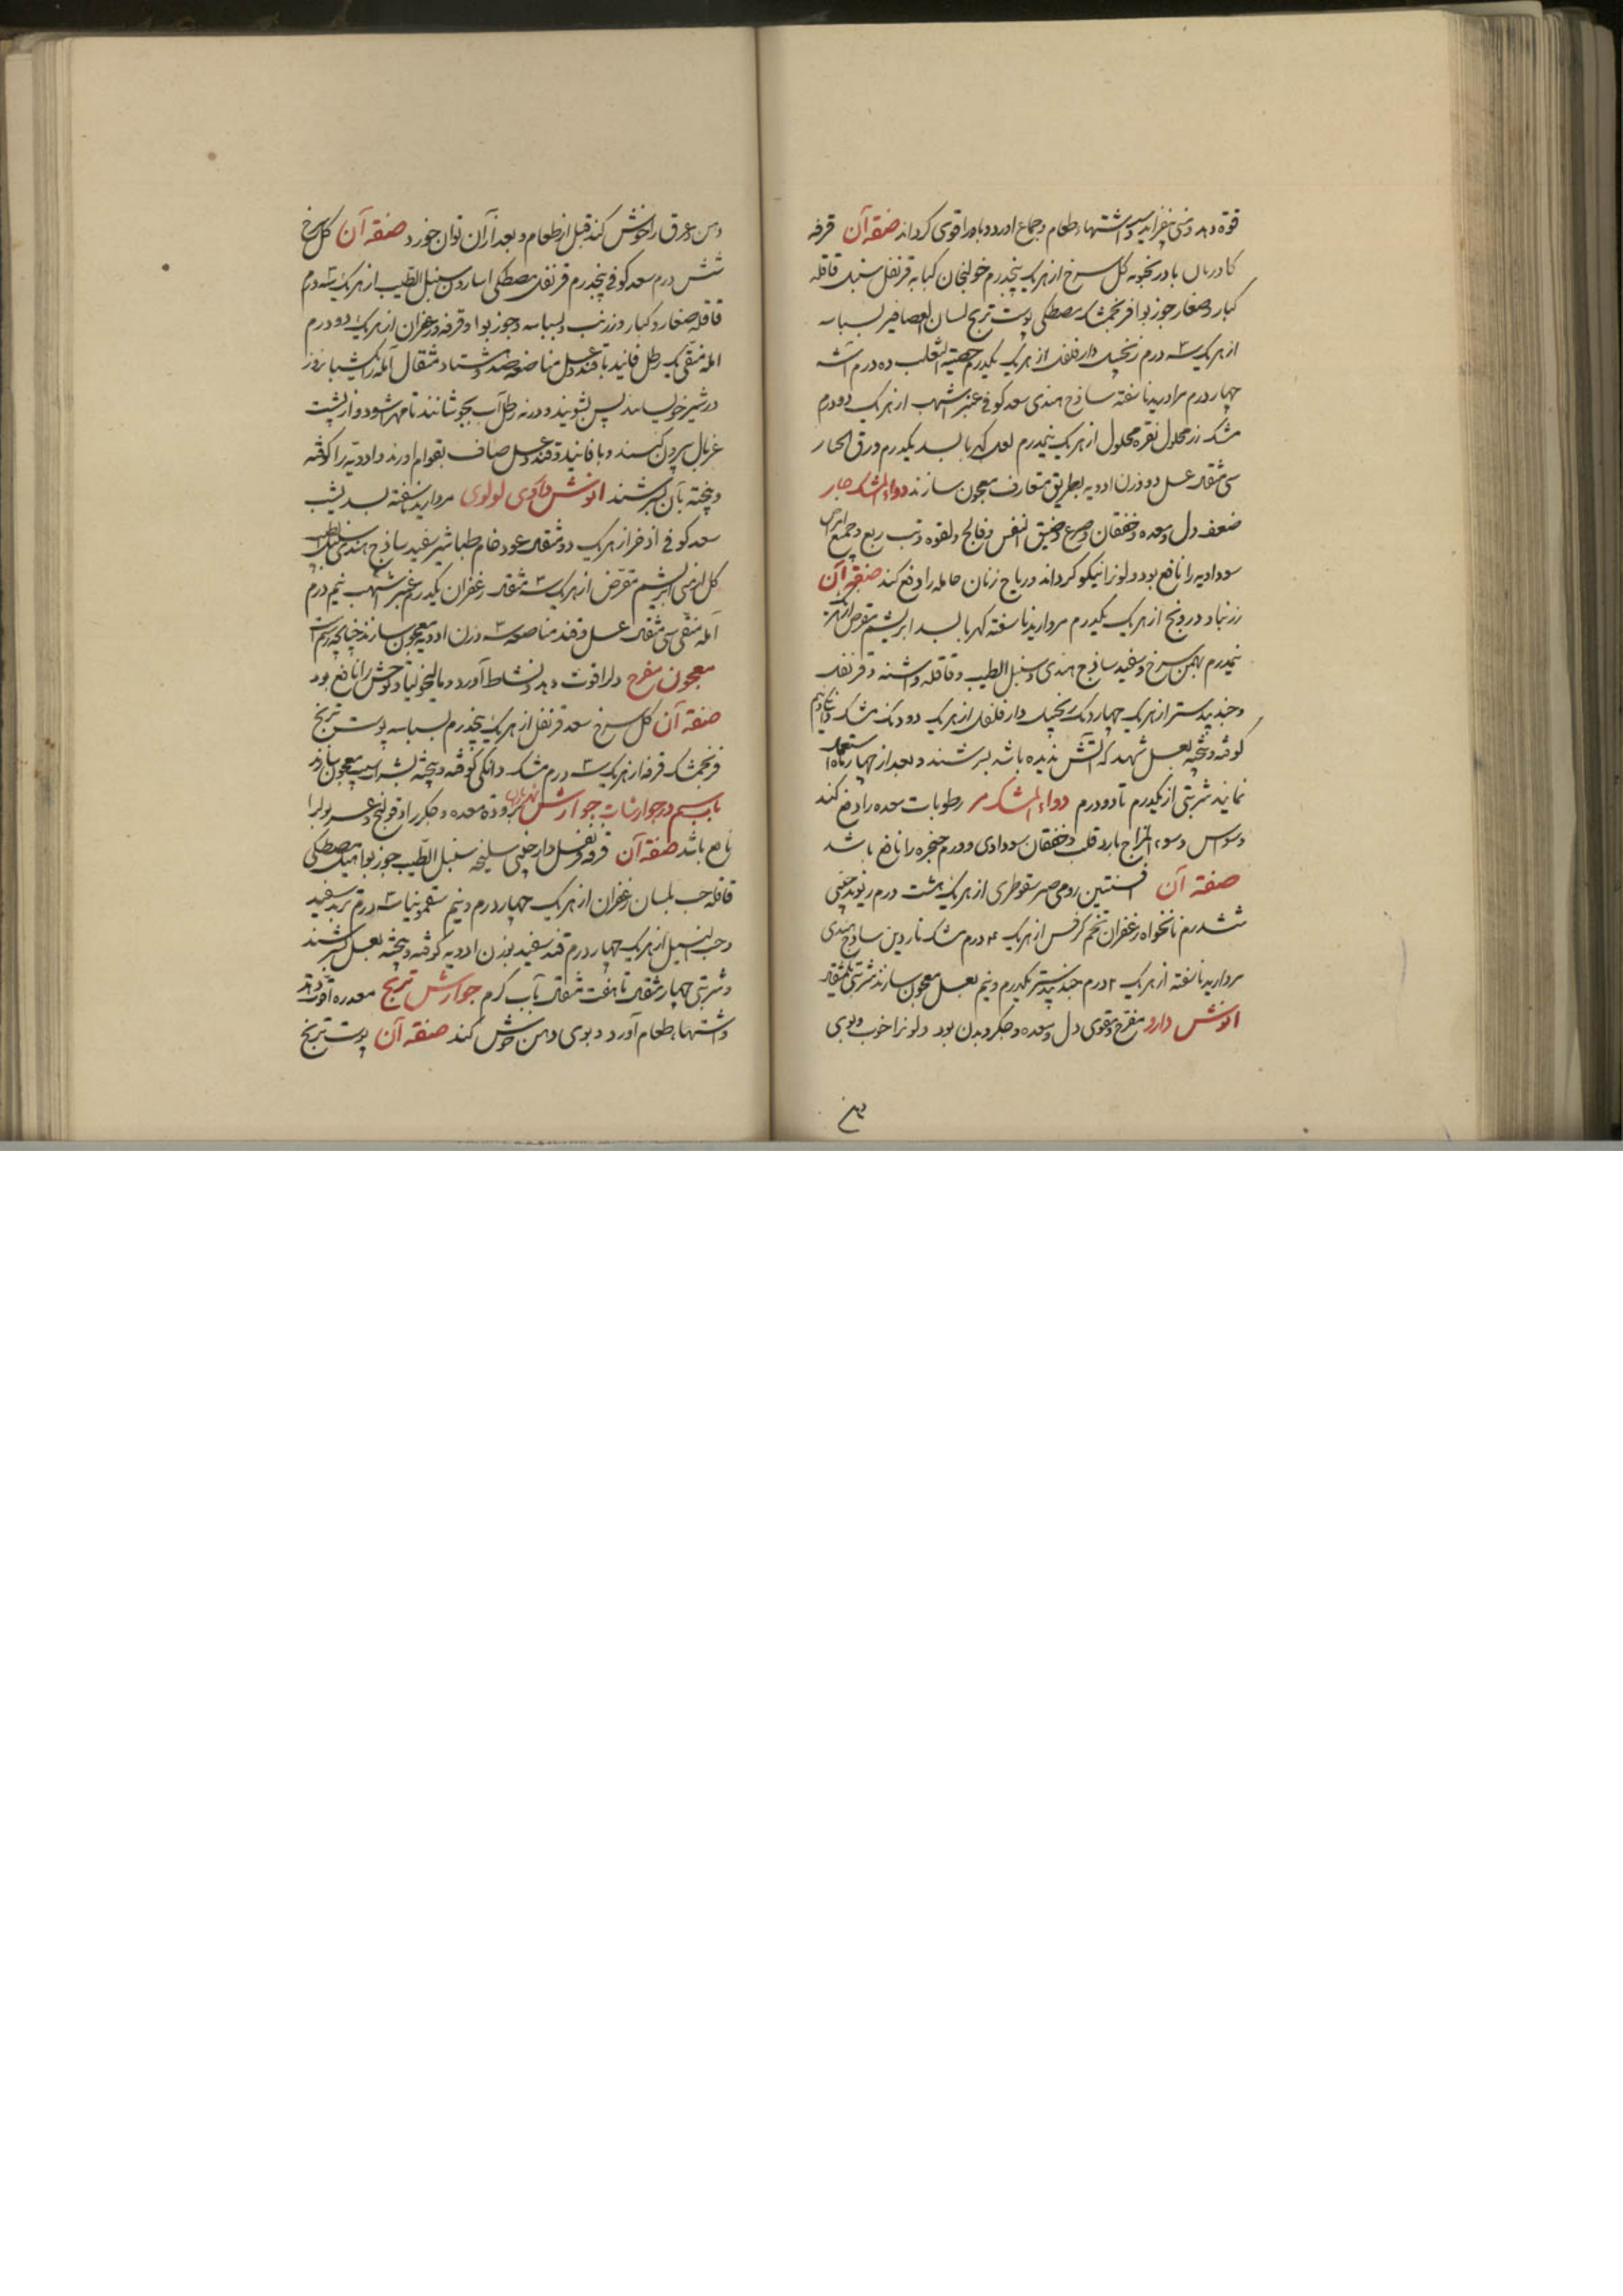 قوة دهد و منی بیفزاید و اشتهاء طعام و جماع اورد و باه را قوی کرداند صفة آن قرفه
بادرنجبویه کل سرخ از هریک پنجدرم خولنجان کبابه قرنفل سنبل قاقله
کبار و صغار جوزبوا فرنجمشک مصطکی پوست ترنج لسان العصافیر بسباسه
از هریک سه درم زنجبیل دارفلفل از هریک یکدرم خصیة الثعلب ده درم اشنه
چهار درم مروارید ناسفته ساذج هندی سعد کوفی عنبر اشهب از هریک دودرم
مشک زر محلول نقره محلول از هریک نیمدرم لعل کهربا بسد یکدرم ورق
سی مثقال عسل دو وزن ادویه بطریق متعارف معجون سازند دواء المشک حار
ضعف دل و معده و خفقان و صرع و ضیق النفس و فالج و لقوه و تب ربع و جمیع امراض
سوداویه را نافع بود و لونرا نیکو کرداند و ریاح زنان حامله را دفع کند صفة آن
زرنباد درونج از هریک یکدرم مروارید ناسفته کهربا بسد ابریشم مقرض از هریک
نیمدرم بهمن سرخ و سفید ساذج هندی و سنبل الطیب و قاقله و اشنه و قرنفل
و جندبیدستر از هریک چهار دنک زنجبیل دارفلفل از هریک دودنک مشک
کوفته و بیخته بعسل شهد که آتش ندیده باشد بسرشند و بعد از چهار ماه استعمال
نمایند شربتی از یکدرم تا دودرم دواء المشک مر رطوبات معده را دفع کند
و وسواس و سوء المزاج بارد قلب و خفقان سوداوی و ورم حنجره را نافع باشد
صفة آن افسنتین رومی صبر سقوطری از هریک هشت درم ریوند چینی
ششدرم نانخواه زعفران تخم کرفس از هریک ۴ درم مشک ناردین ساذج هندی
مروارید ناسفته از هریک ۲ درم جندبیدستر یکدرم و نیم بعسل معجون سازند شربتی یکمثقال
انوش دارو مفرح و مقوی دل و معده و جکر و بدن بود و لونرا خوب و بوی
دهن
دهن و عرق را خوش کند قبل از طعام و بعد از آن توان خورد صفة آن کل سرخ
شش درم سعد کوفی پنجدرم قرنفل مصطکی اسارون سنبل الطیب از هریک سه درم
قاقله صغار و کبار و زرنب و بسباسه و جوزبوا و قرفه و زعفران از هریک دو درم
امله منقی یک رطل فانید یا قند و عسل مناصفه صد و هشتاد مثقال آمله را یک شبانروز
در شیر خیسانند پس بشویند و در نه رطل آب بجوشانند تا مهرا شود و از پشت
غربال بیرون کنند و با فانید و قند و عسل صاف بقوام اورند و ادویه را کوفته
و بیخته بآن بسرشند انوش داروی لولوی مروارید ناسفته بسد یشب
سعد کوفی اذخر از هریک دو مثقال عود خام طباشیر سفید ساذج هندی سنبل الطیب
کل ارمنی ابریشم مقرض از هریک سه مثقال زعفران یکدرم عنبر اشهب نیم درم
آمله منقی سی مثقال عسل و قند مناصفه سه وزن ادویه معجون سازند چنانچه رسمست
معجون مفرح دلرا قوت دهد و نشاط آورد و مالیخولیا و توحش را نافع بود
صفة آن کل سرخ سعد قرنفل از هریک پنجدرم بسباسه پوست ترنج
فرنجمشک قرفه از هریک سه درم مشک دانکی کوفته و بیخته بشراب سیب معجون سازند
باب بیستم در جوارشات جوارش برودة معده و جکر را و قولنج و عسر بول را
نافع باشد صفة آن قرفه قرنفل دارچینی سلیخه سنبل الطیب جوزبوا هیل مصطکی
قاقله حب بلسان زعفران از هریک چهار درم و نیم سقمونیا سه درم تربد سفید
و حب النیل از هریک چهار درم قند سفید بوزن ادویه کوفته و بیخته بعسل بسرشند
و شربتی چهار مثقال تا هفت مثقال بآب کرم جوارش ترنج معده را قوت دهد
و اشتهاء طعام آورد و بوی دهن خوش کند صفة آن پوست ترنج